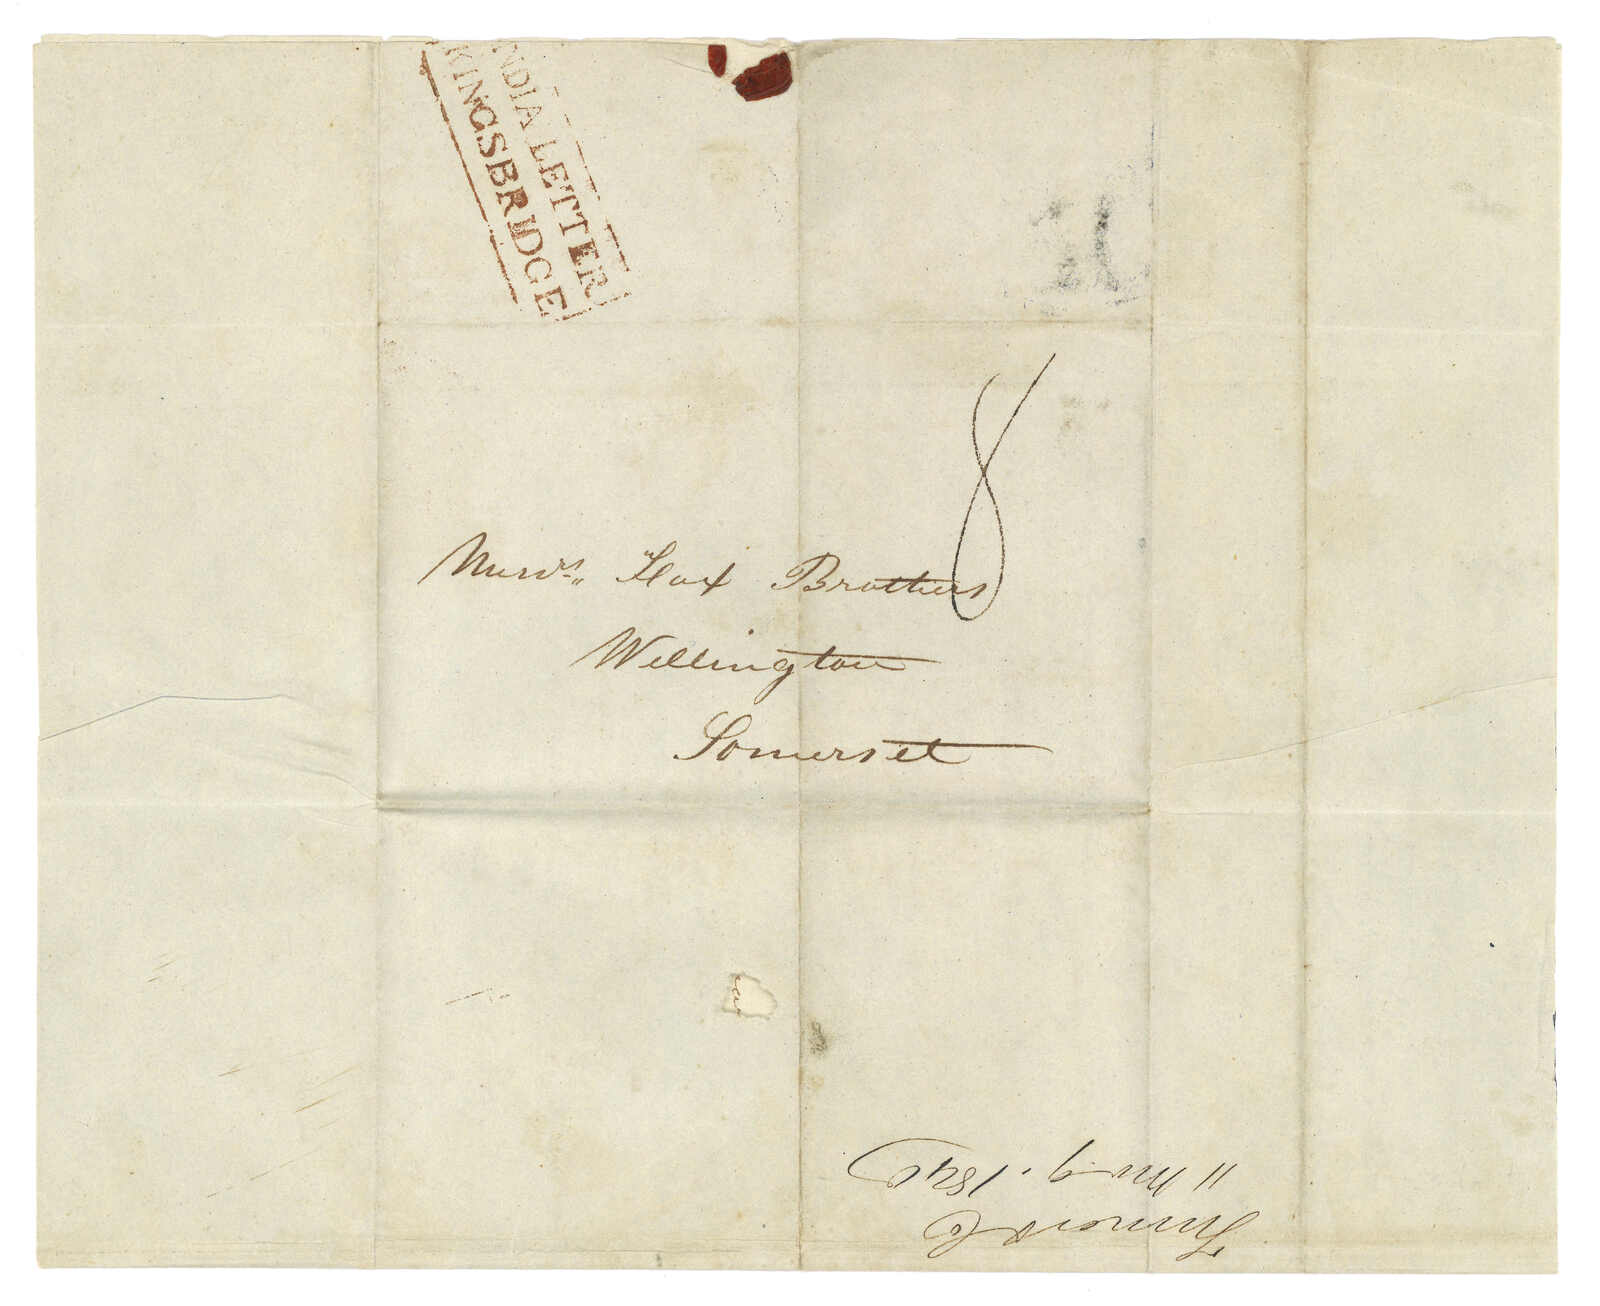 INDIA LETTER
KINGSBRIDGE
8
Messrs. Fox Brothers
Wellington
Somerset